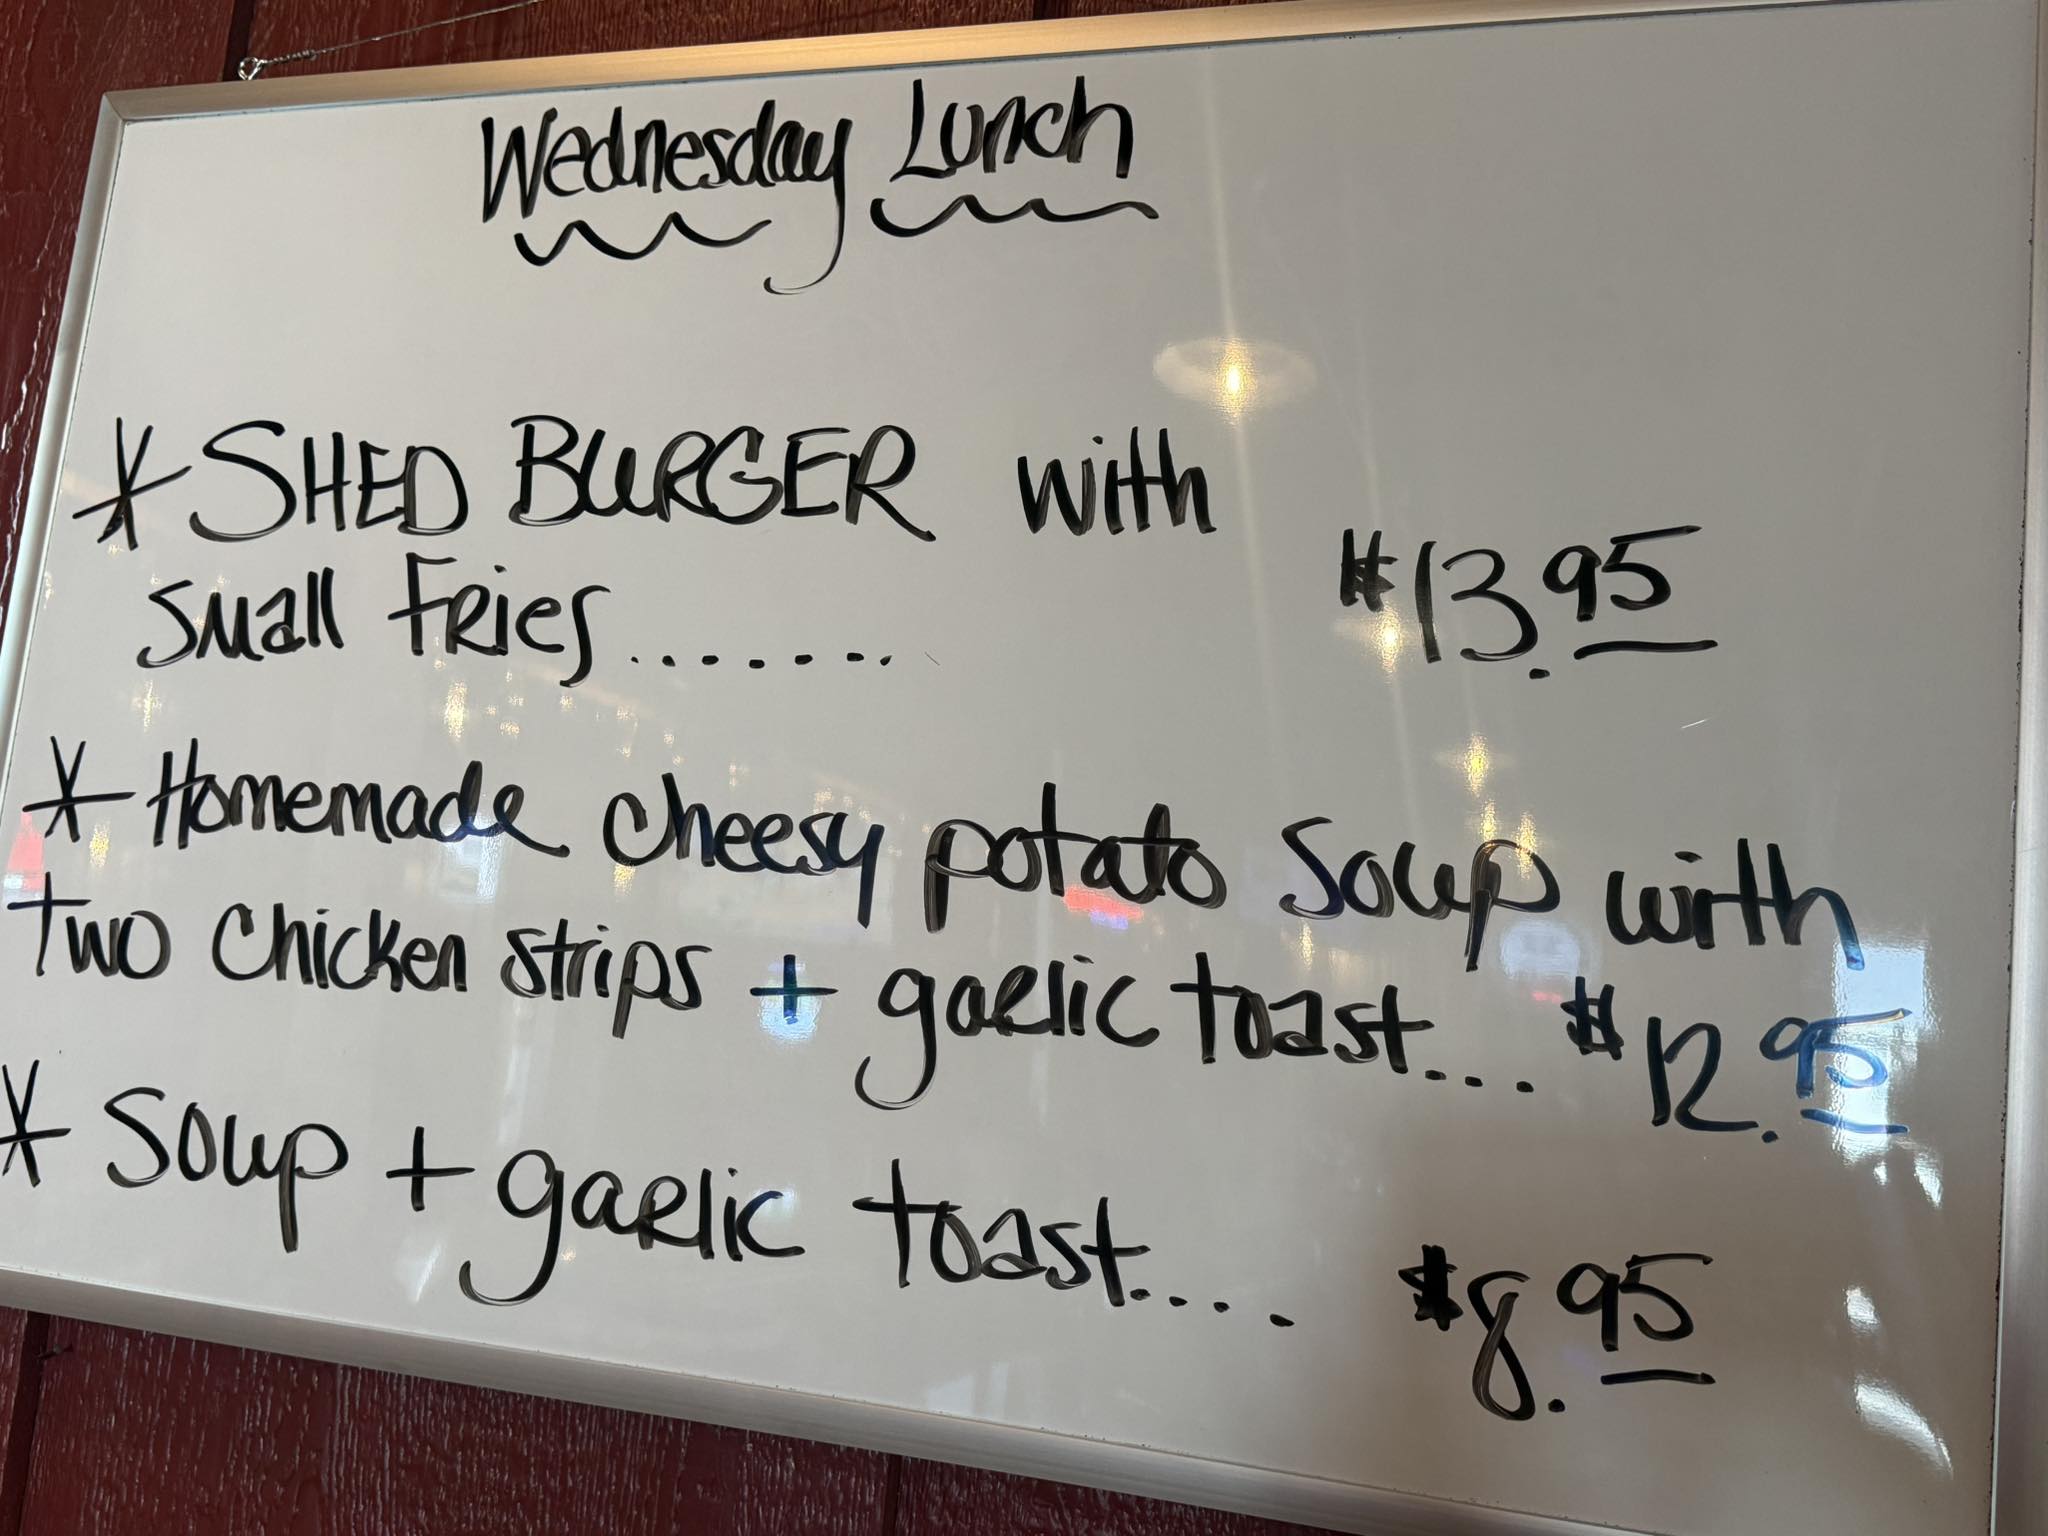 Wednesday Lunch
* SHED BURGER with
Small Fries....... $13.95
* Homemade cheesy potato soup with
two chicken strips + garlic toast.... $12.95
* Soup + garlic toast.... $8.95